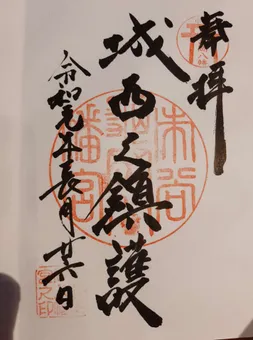 奉拝
城西之鎮護
令和元年長月廿六日